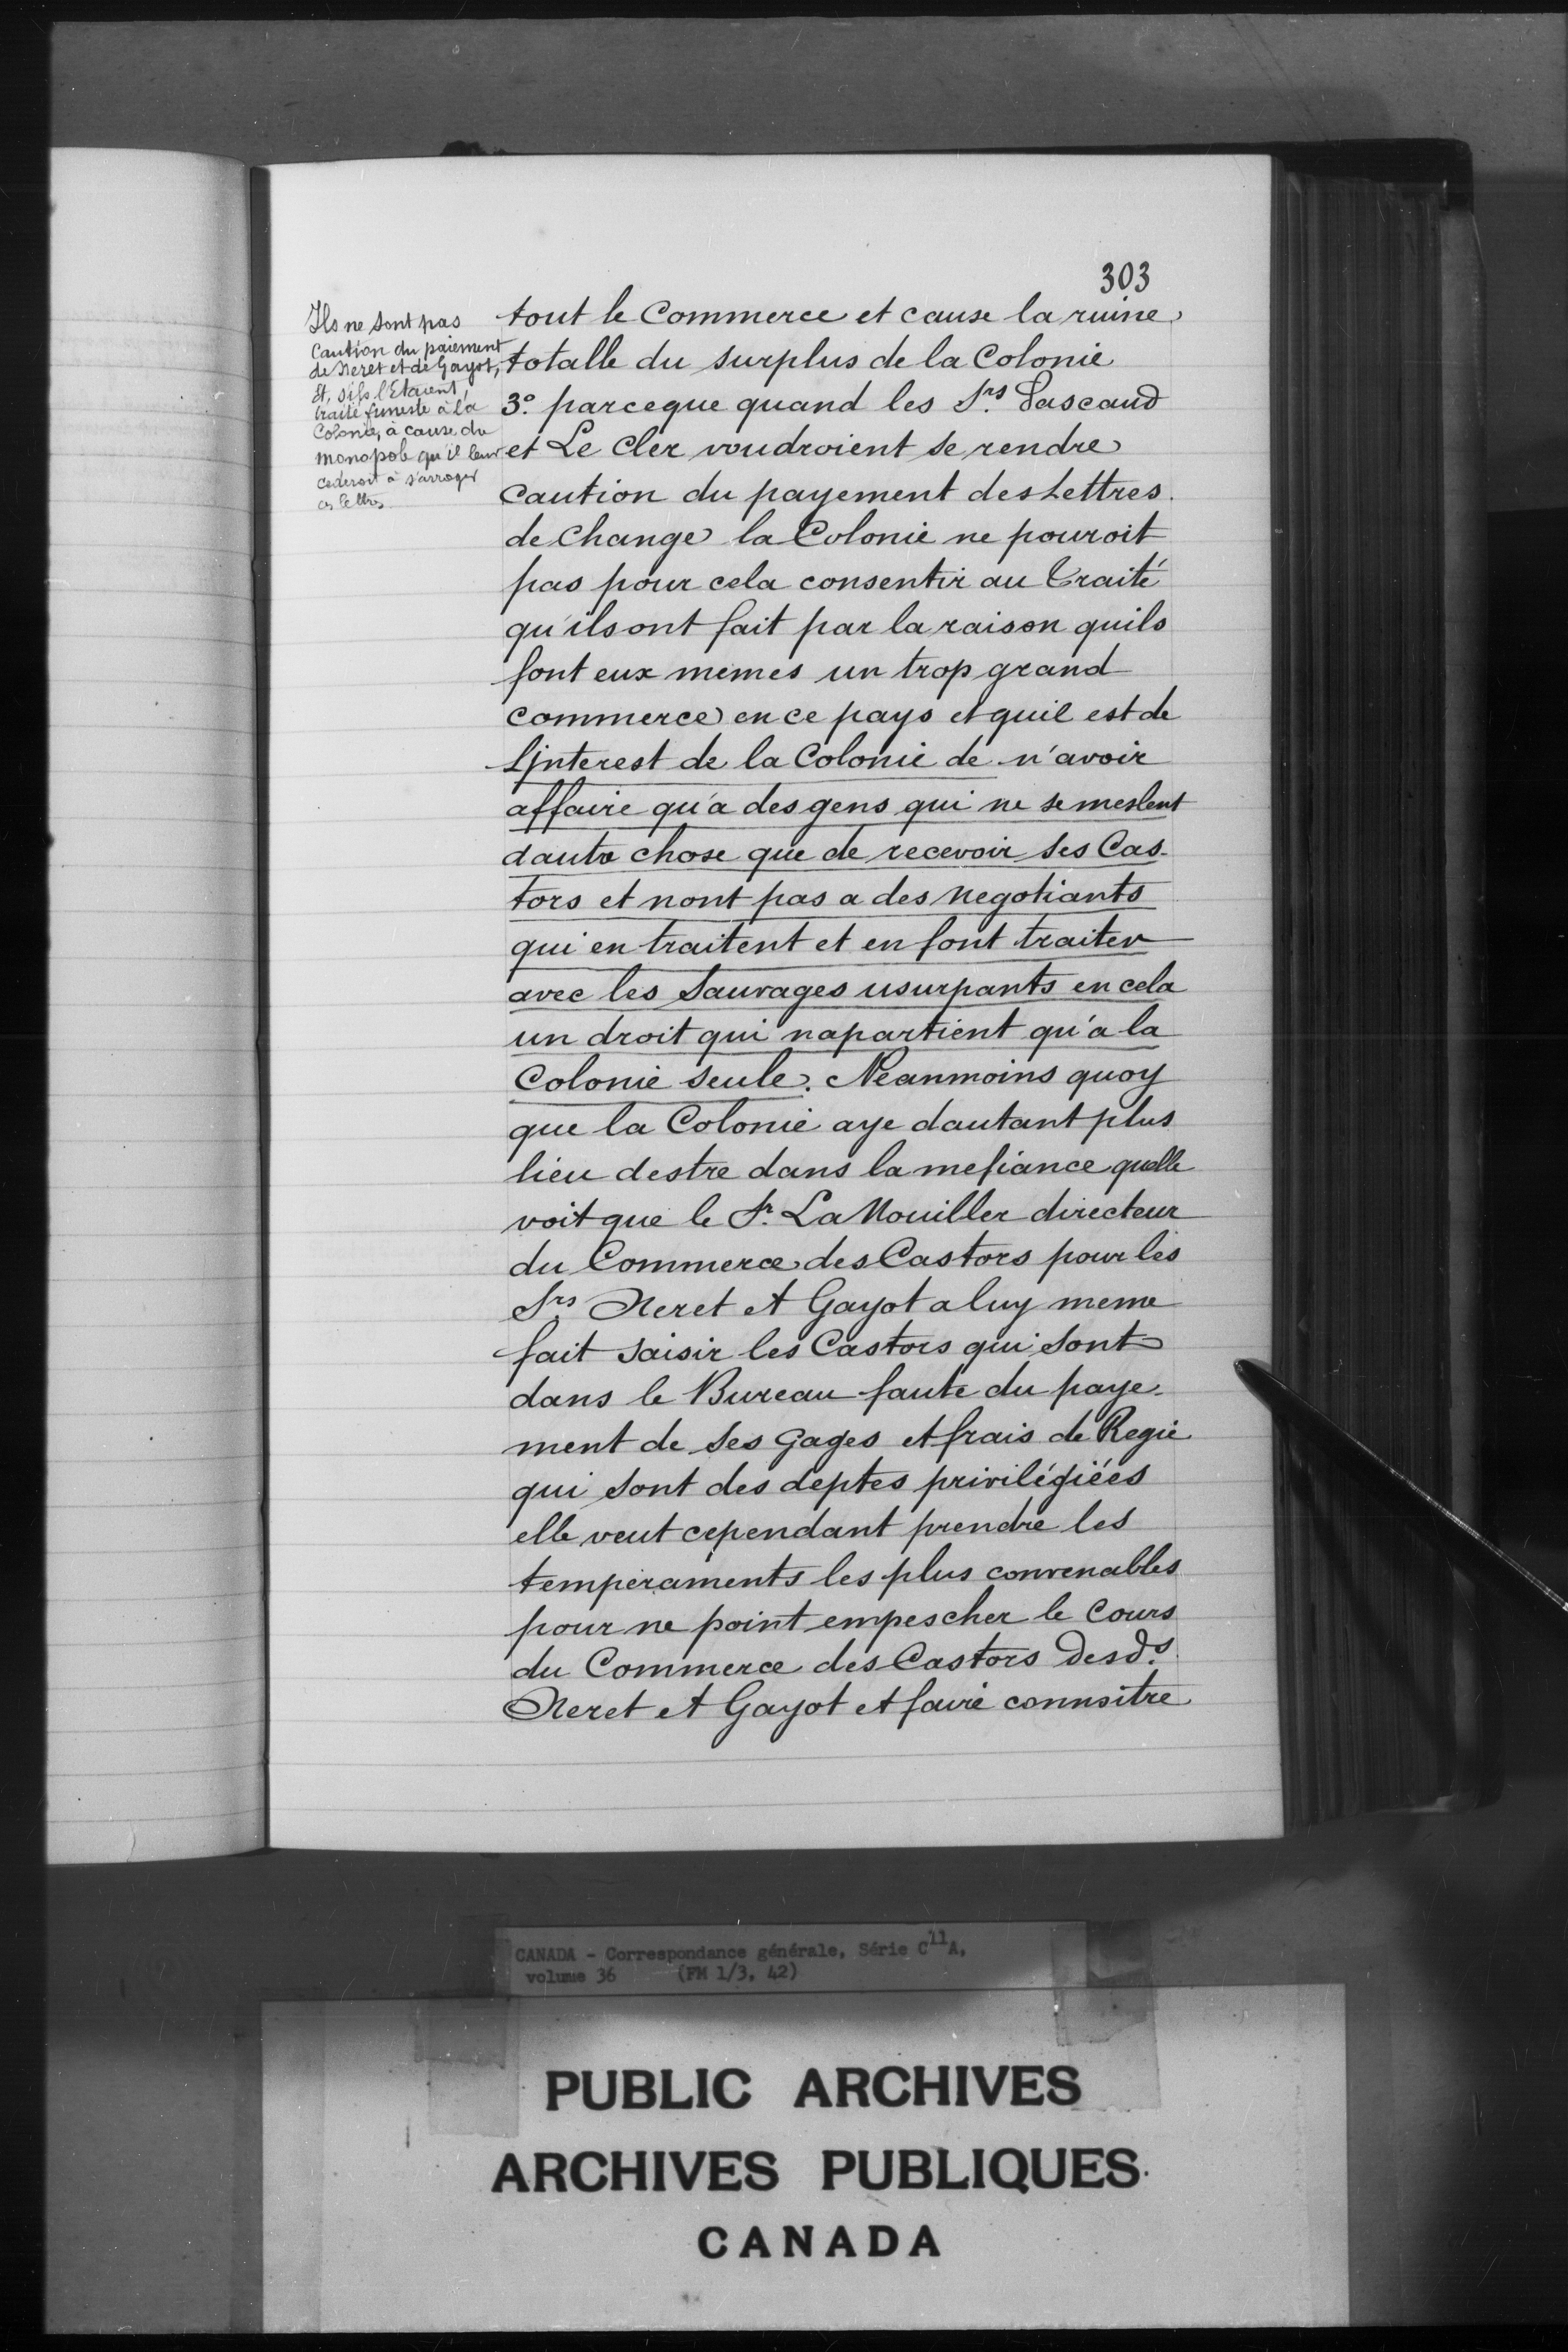 303
Ils ne sont pas
Caution du paiement
de Neret et de Gayot,
Et, s'ils l'Etaient,
traité funeste à la
Colonie, à cause du
monopole qu'il leur
cederoit à s'arroger
tout le Commerce et cause la ruine
totalle du surplus de la Colonie
3.o parceque quand les Srs. Pascaud
et Le Cler voudroient se rendre
Caution du payement des Lettres
de Change la Colonie ne pouroit
pas pour cela consentir au Traité
qu'ils ont fait par la raison quils
font eux memes un trop grand
commerce en ce pays et quil est de
Ljnterest de la Colonie de n'avoir
affaire qu'a des gens qui ne se meslent
dautre chose que de recevoir ses Cas-
tors et nont pas a des negotiants
qui en traitent et en font traiter
avec les Sauvages usurpants en cela
un droit qui napartient qu'a la
Colonie seule. Neanmoins quoy
que la Colonie aye dautant plus
lieu destre dans la mefiance quelle
voit que le Sr. La Nouiller directeur
du Commerce des Castors pour les
Srs. Neret et Gayot a luy meme
fait saisir les Castors qui sont
dans le Bureau faute du paye-
ment de ses gages et frais de Regie
qui sont des deptes privilégiées
elle veut cependant prendre les
temperaments les plus convenables
pour ne point empescher le Cours
du Commerce des Castors Desds.
Neret et Gayot et faire connoitre
CANADA - Correspondance générale, Série C11A,
volume 36 (FM 1/3, 42)
PUBLIC ARCHIVES
ARCHIVES PUBLIQUES
CANADA